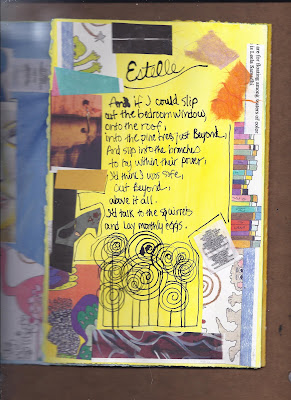 Estelle
And if I could slip
out the bedroom window,
onto the roof,
into the pine trees just Beyond,
And slip into the branches
to lay within their power,
I'd think I was safe,
Out Beyond,
above it all.
I'd talk to the squirrels
and lay monthly eggs.
are for floating among waters of color